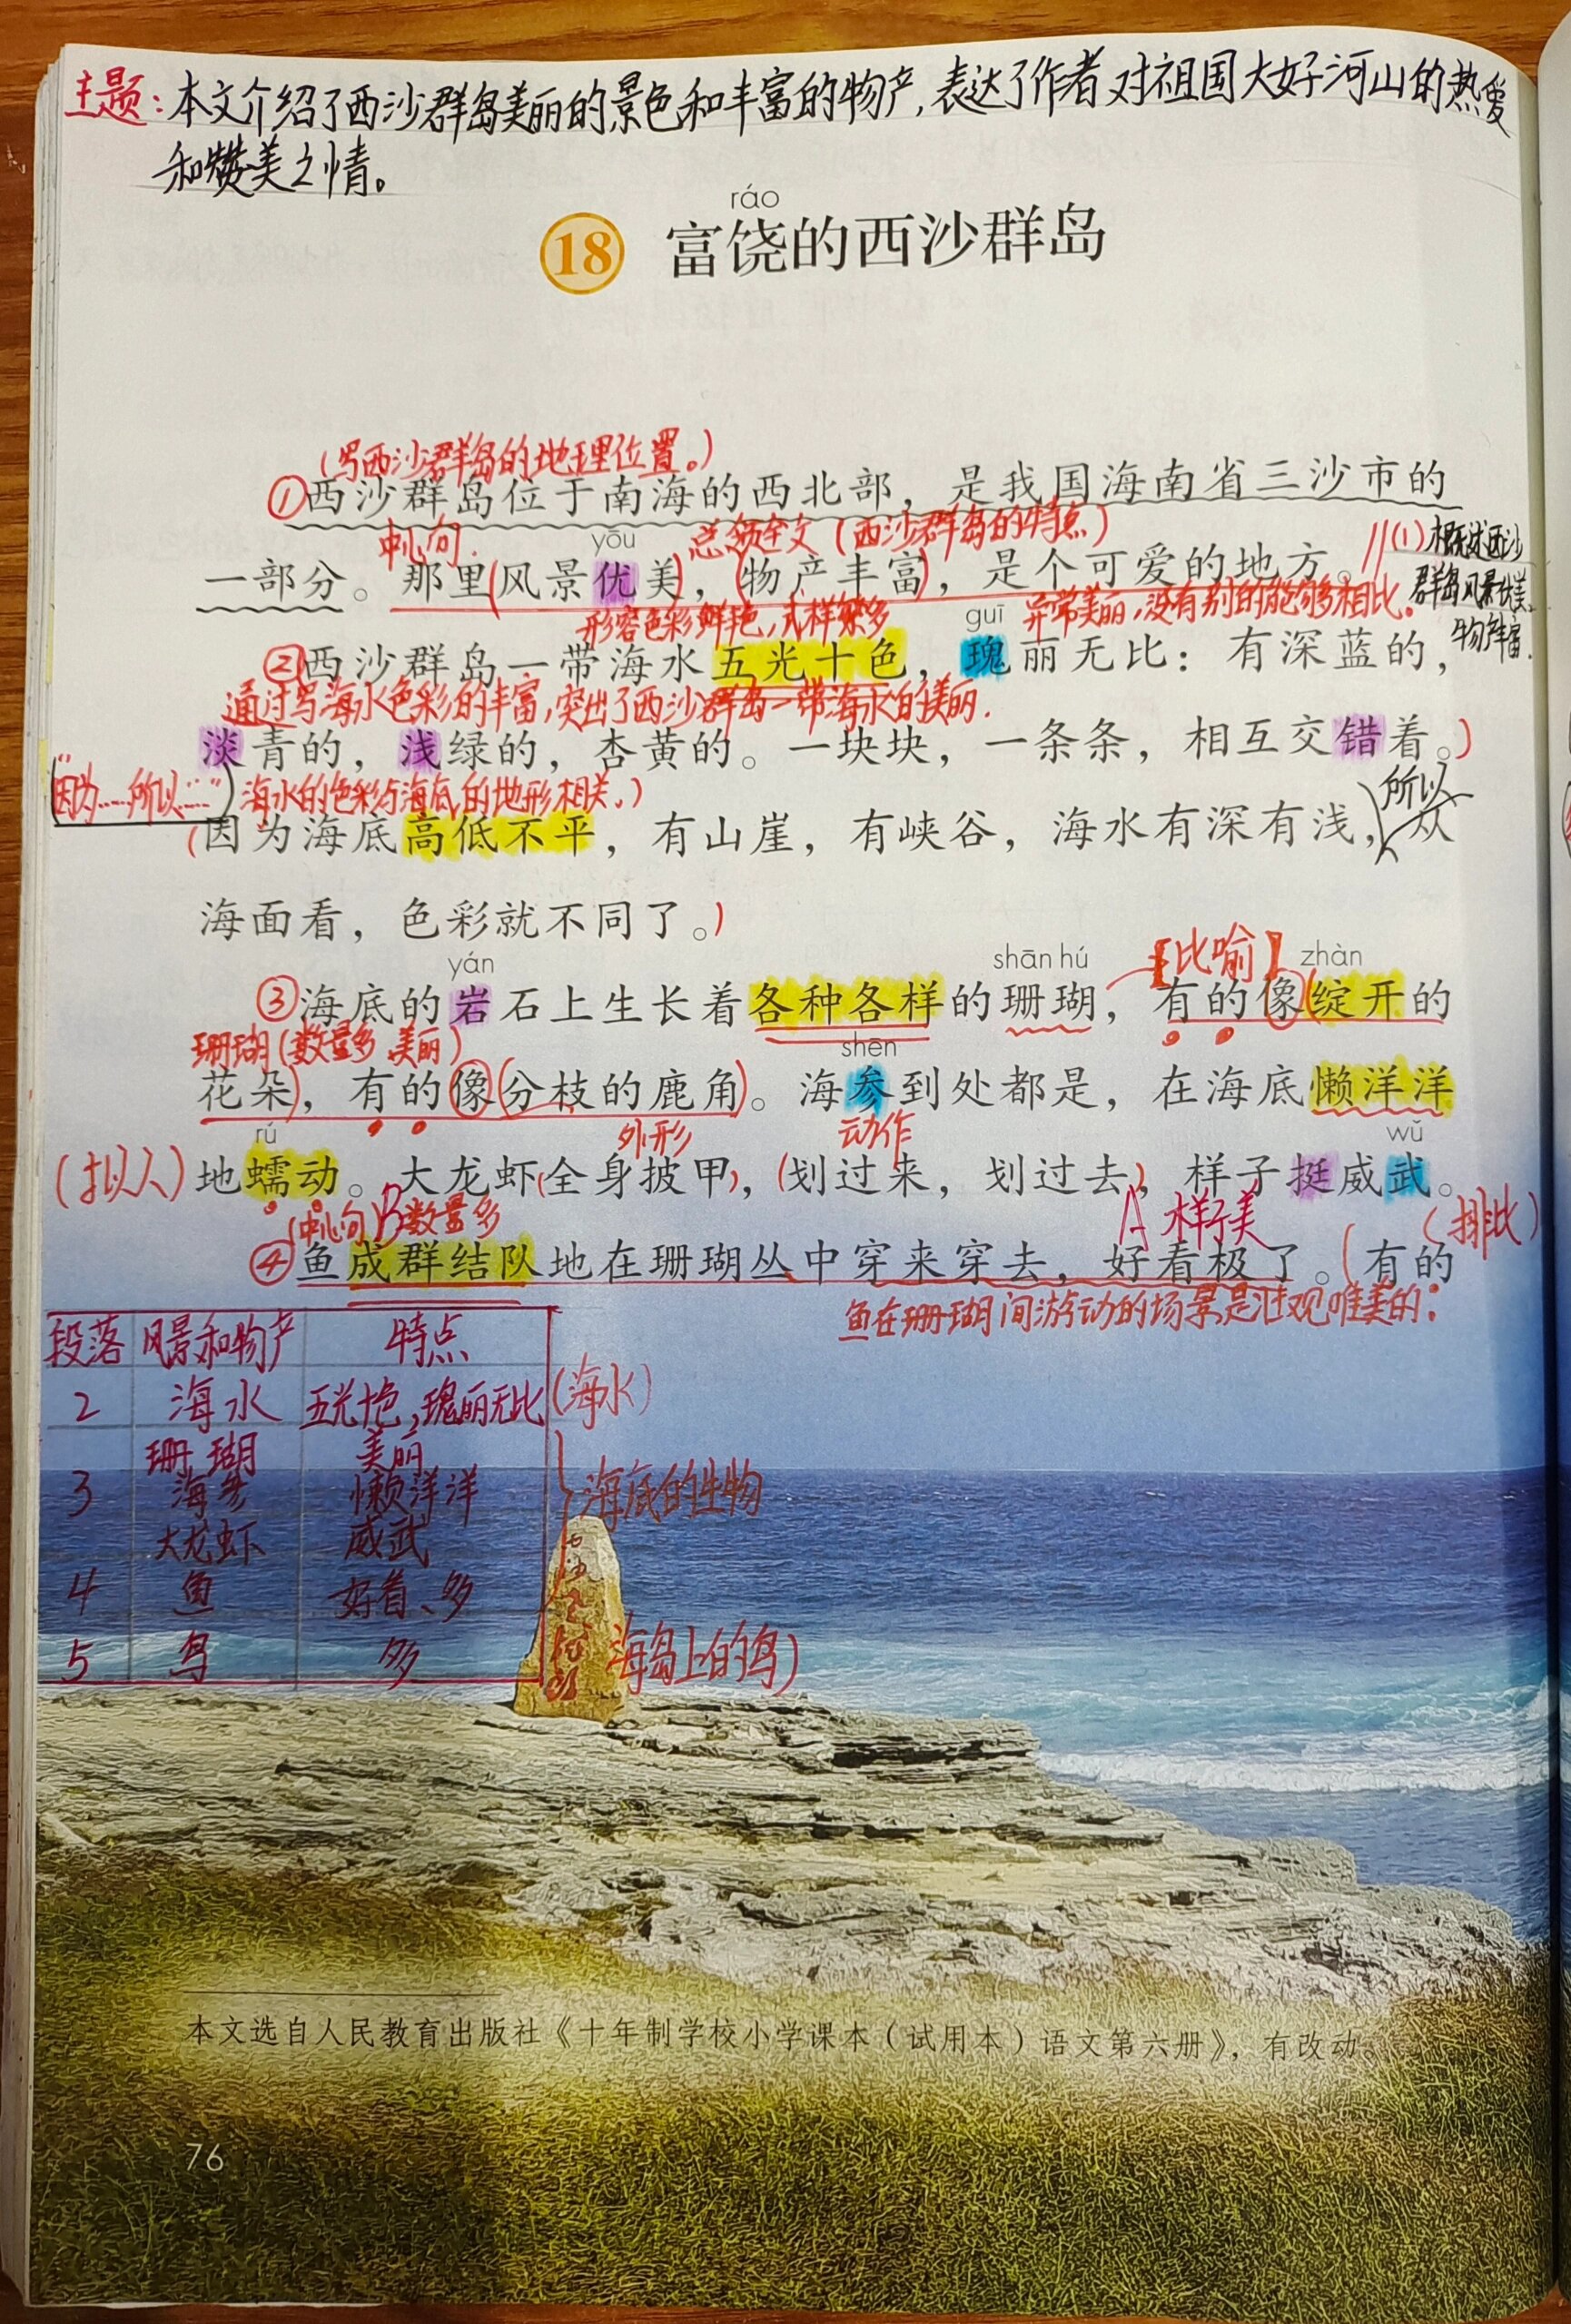 主题:本文介绍了西沙群岛美丽的景色和丰富的物产,表达了作者对祖国大好河山的热爱
和赞美之情。
ráo
18 富饶的西沙群岛
(写西沙群岛的地理位置。)
①西沙群岛位于南海的西北部，是我国海南省三沙市的
中心句. yōu 总领全文(西沙群岛的特点)
一部分。那里(风景优美)，(物产丰富)，是个可爱的地方。//(1)概述西沙
群岛风景优美、
物产丰富.
形容色彩鲜艳,式样繁多 guī 异常美丽,没有别的能够相比。
②西沙群岛一带海水五光十色，瑰丽无比：有深蓝的，
通过写海水色彩的丰富,突出了西沙群岛一带海水的美丽.
淡青的，浅绿的，杏黄的。一块块，一条条，相互交错着。)
"因为……所以……") 海水的色彩与海底的地形相关.) 所以
(因为海底高低不平，有山崖，有峡谷，海水有深有浅，从
海面看，色彩就不同了。)
yán shān hú 【比喻】 zhàn
③海底的岩石上生长着各种各样的珊瑚，有的像(绽开的
珊瑚(数量多 美丽) shēn
花朵)，有的像(分枝的鹿角)。海参到处都是，在海底懒洋洋
rú 外形 动作 wǔ
(拟人)地蠕动。大龙虾(全身披甲)，(划过来，划过去)，样子挺威武。
(中心句) B数量多 A 样子美 (排比)
④鱼成群结队地在珊瑚丛中穿来穿去，好看极了。(有的
鱼在珊瑚间游动的场景是壮观唯美的:
段落 风景和物产 特点
2 海水 五光十色,瑰丽无比 (海水)
珊瑚 美丽
3 海参 懒洋洋 海底的生物
大龙虾 威武
4 鱼 好看、多
5 鸟 多 海岛上的鸟)
本文选自人民教育出版社《十年制学校小学课本（试用本）语文第六册》，有改动。
76